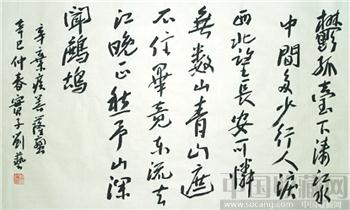 鬱孤臺下清江水
中間多少行人淚
西北望長安可憐
無數山青山遮
不住畢竟東流去
江晚正愁予山深
聞鷓鴣
辛棄疾菩薩蠻
辛巳仲春劉藝
中国收藏网
www.socang.com